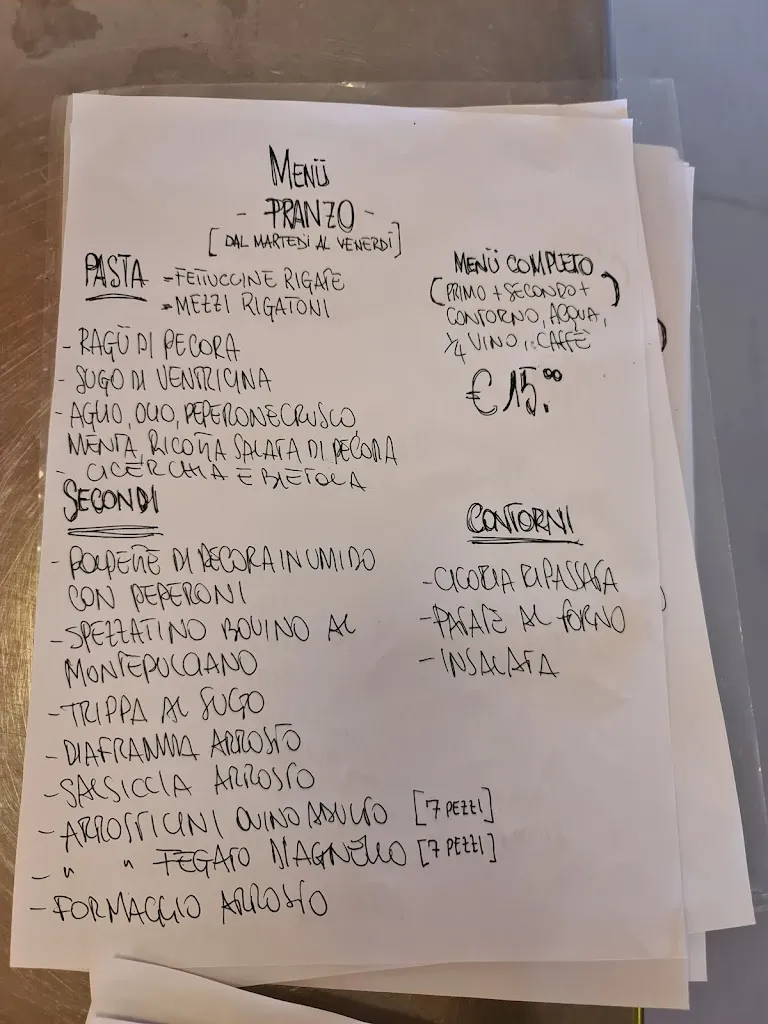 MENÜ
- PRANZO -
[DAL MARTEDÌ AL VENERDÌ]
PASTA =FETTUCCINE RIGATE
=MEZZI RIGATONI
- RAGÙ DI PECORA
- SUGO DI VENTRICINA
- AGLIO, OLIO, PEPERONE CRUSCO,
MENTA, RICOTTA SALATA DI PECORA
- CICERCHIA E BIETOLA
MENÙ COMPLETO
(PRIMO + SECONDO +
CONTORNO, ACQUA,
1/4 VINO, CAFFÈ)
€ 15.00
SECONDI
- POLPETTE DI PECORA IN UMIDO
CON PEPERONI
- SPEZZATINO BOVINO AL
MONTEPULCIANO
- TRIPPA AL SUGO
- DIAFRAMMA ARROSTO
- SALSICCIA ARROSTO
- ARROSTICINI OVINO ADULTO [7 PEZZI]
- " " FEGATO D'AGNELLO [7 PEZZI]
- FORMAGGIO ARROSTO
CONTORNI
- CICORIA RIPASSATA
- PATATE AL FORNO
- INSALATA